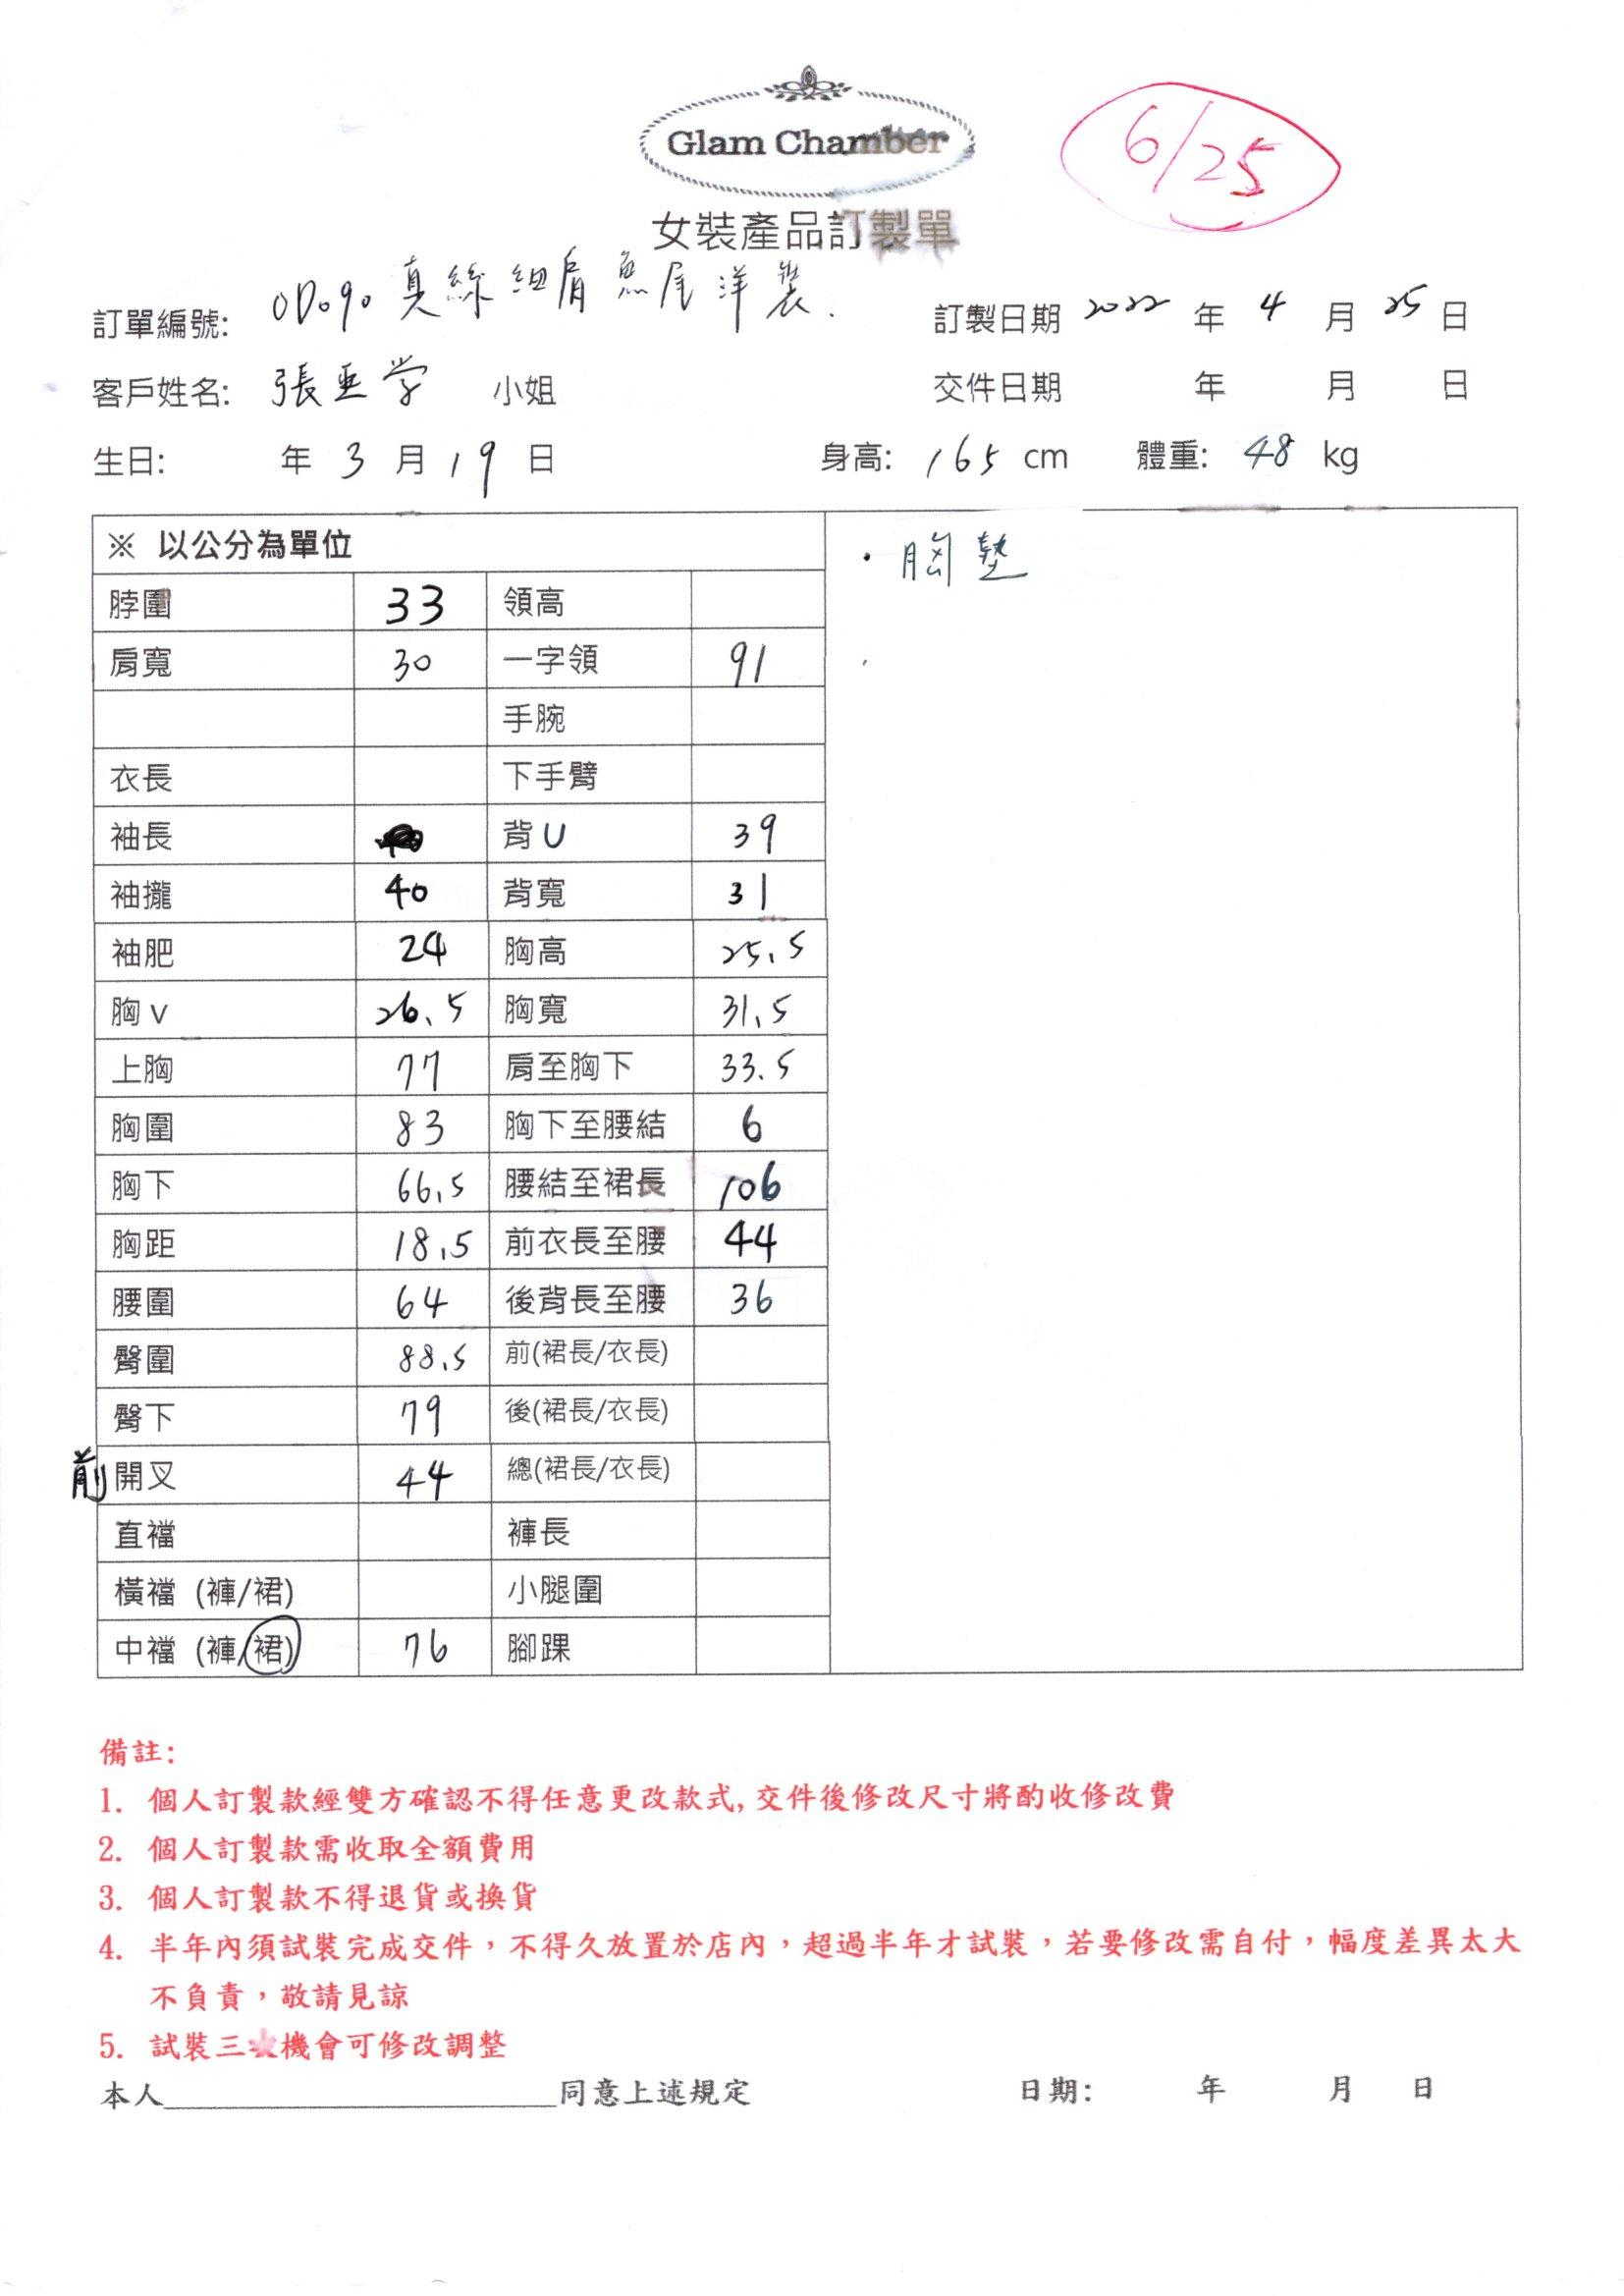 Glam Chamber
6/25
女裝產品訂製單
訂單編號: OD090 真絲細肩魚尾洋裝. 訂製日期 2022 年 4 月 25 日
客戶姓名: 張亞学 小姐 交件日期 年 月 日
生日: 年 3 月 19 日 身高: 165 cm 體重: 48 kg
※ 以公分為單位
・胸墊
脖圍 33 領高
肩寬 30 一字領 91
手腕
衣長 下手臂
袖長 背U 39
袖攏 40 背寬 31
袖肥 24 胸高 25.5
胸v 26.5 胸寬 31.5
上胸 77 肩至胸下 33.5
胸圍 83 胸下至腰結 6
胸下 66.5 腰結至裙長 106
胸距 18.5 前衣長至腰 44
腰圍 64 後背長至腰 36
臀圍 88.5 前(裙長/衣長)
臀下 79 後(裙長/衣長)
前 開叉 44 總(裙長/衣長)
直襠 褲長
橫襠 (褲/裙) 小腿圍
中襠 (褲/裙) 76 腳踝
備註:
1. 個人訂製款經雙方確認不得任意更改款式,交件後修改尺寸將酌收修改費
2. 個人訂製款需收取全額費用
3. 個人訂製款不得退貨或換貨
4. 半年內須試裝完成交件，不得久放置於店內，超過半年才試裝，若要修改需自付，幅度差異太大
不負責，敬請見諒
5. 試裝三機會可修改調整
本人 同意上述規定 日期: 年 月 日